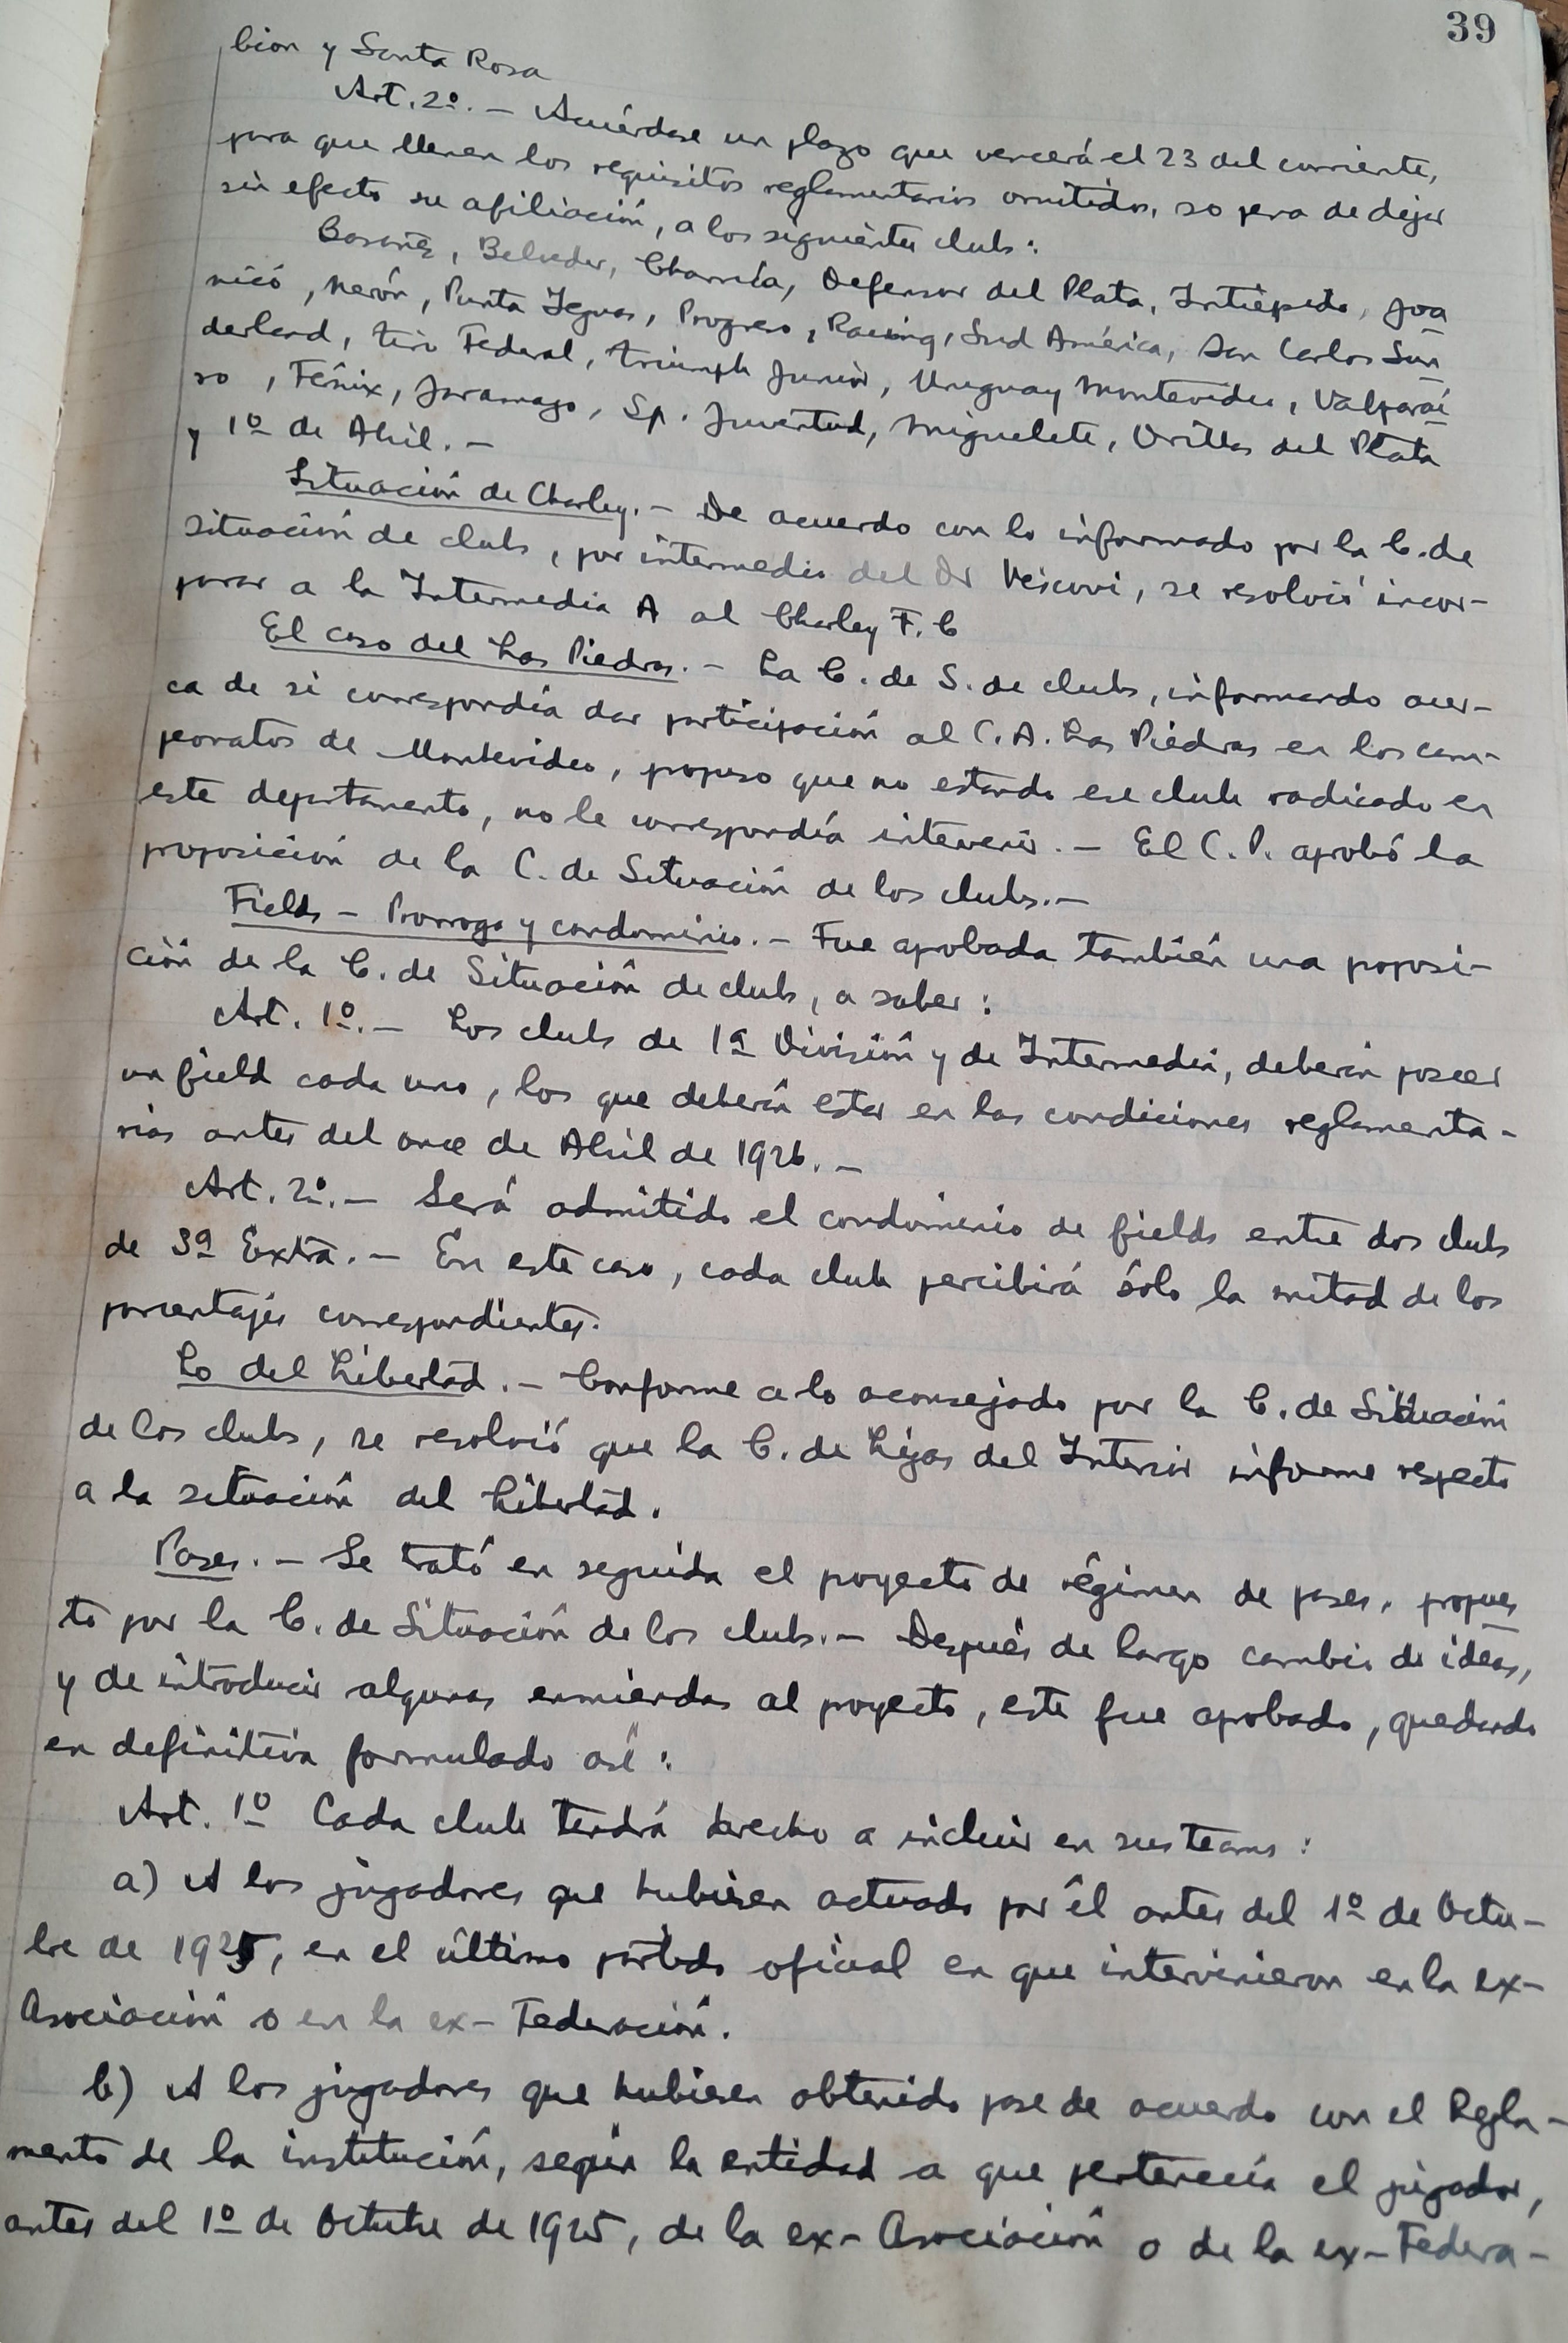 39
bion y Santa Rosa
Art. 2º. — Acuérdase un plazo que vencerá el 23 del corriente,
para que llenen los requisitos reglamentarios omitidos, so pena de dejar
sin efecto su afiliación, a los siguientes clubs:
Basañez, Belveder, Charrúa, Defensor del Plata, Intrépido, Joa
nicó, Nerón, Punta Yeguas, Progreso, Racing, Sud América, San Carlos Sun
derland, Tiro Federal, Triumph Junior, Uruguay Montevideo, Valparaí
so, Fénix, Jaramago, Sp. Juventud, Miguelete, Orillas del Plata
y 1º de Abril. —
Situación de Charley. — De acuerdo con lo informado por la C. de
Situación de clubs, por intermedio del Dr Vescovi, se resolvió incor-
porar a la Intermedia A al Charley F. C
El caso del Las Piedras. — La C. de S. de clubs, informando acer-
ca de si correspondía dar participación al C. A. Las Piedras en los cam-
peonatos de Montevideo, propuso que no estando ese club radicado en
este departamento, no le correspondía intervenir. — El C. P. aprobó la
proposición de la C. de Situación de los clubs. —
Fields — Prorroga y condominio. — Fue aprobada también una proposi-
ción de la C. de Situación de clubs, a saber:
Art. 1º. — Los clubs de 1ª División y de Intermedia, deberán poseer
un field cada uno, los que deberán estar en las condiciones reglamenta-
rias antes del once de Abril de 1926. —
Art. 2º. — Será admitido el condominio de fields entre dos clubs
de 3ª Extra. — En este caso, cada club percibirá sólo la mitad de los
porcentajes correspondientes.
Lo del Libertad. — Conforme a lo aconsejado por la C. de Situación
de los clubs, se resolvió que la C. de Ligas del Interior informe respecto
a la situación del Libertad.
Pases. — Se trató en seguida el proyecto de régimen de pases, propues
to por la C. de Situación de los clubs. — Después de largo cambio de ideas,
y de introducir algunas enmiendas al proyecto, este fue aprobado, quedando
en definitiva formulado así:
Art. 1º Cada club tendrá derecho a incluir en sus teams:
a) A los jugadores que hubiesen actuado por él antes del 1º de Octu-
bre de 1925, en el último partido oficial en que intervinieron en la ex-
Asociación o en la ex- Federación.
b) A los jugadores que hubiesen obtenido pase de acuerdo con el Regla-
mento de la institución, según la entidad a que pertenecía el jugador,
antes del 1º de Octubre de 1925, de la ex- Asociación o de la ex- Federa-